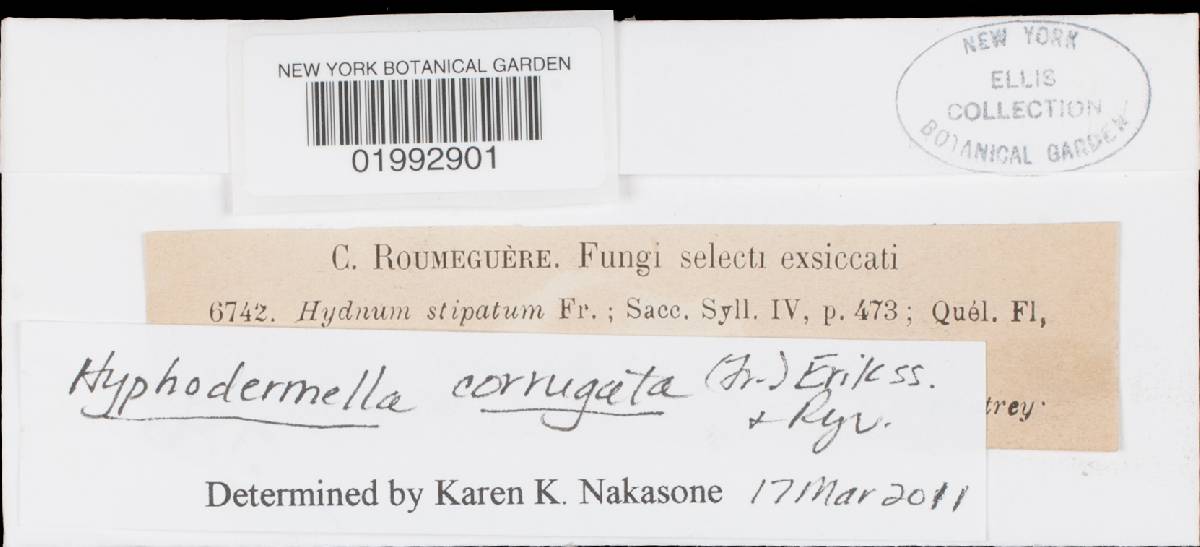 NEW YORK BOTANICAL GARDEN
01992901
NEW YORK
ELLIS
COLLECTION
BOTANICAL GARDEN
C. ROUMEGUÈRE. Fungi selecti exsiccati
6742. Hydnum stipatum Fr. ; Sacc. Syll. IV, p. 473 ; Quél. Fl,
Hyphodermella corrugata (Fr.) Erikss.
+ Ryv.
trey.
Determined by Karen K. Nakasone 17 Mar 2011